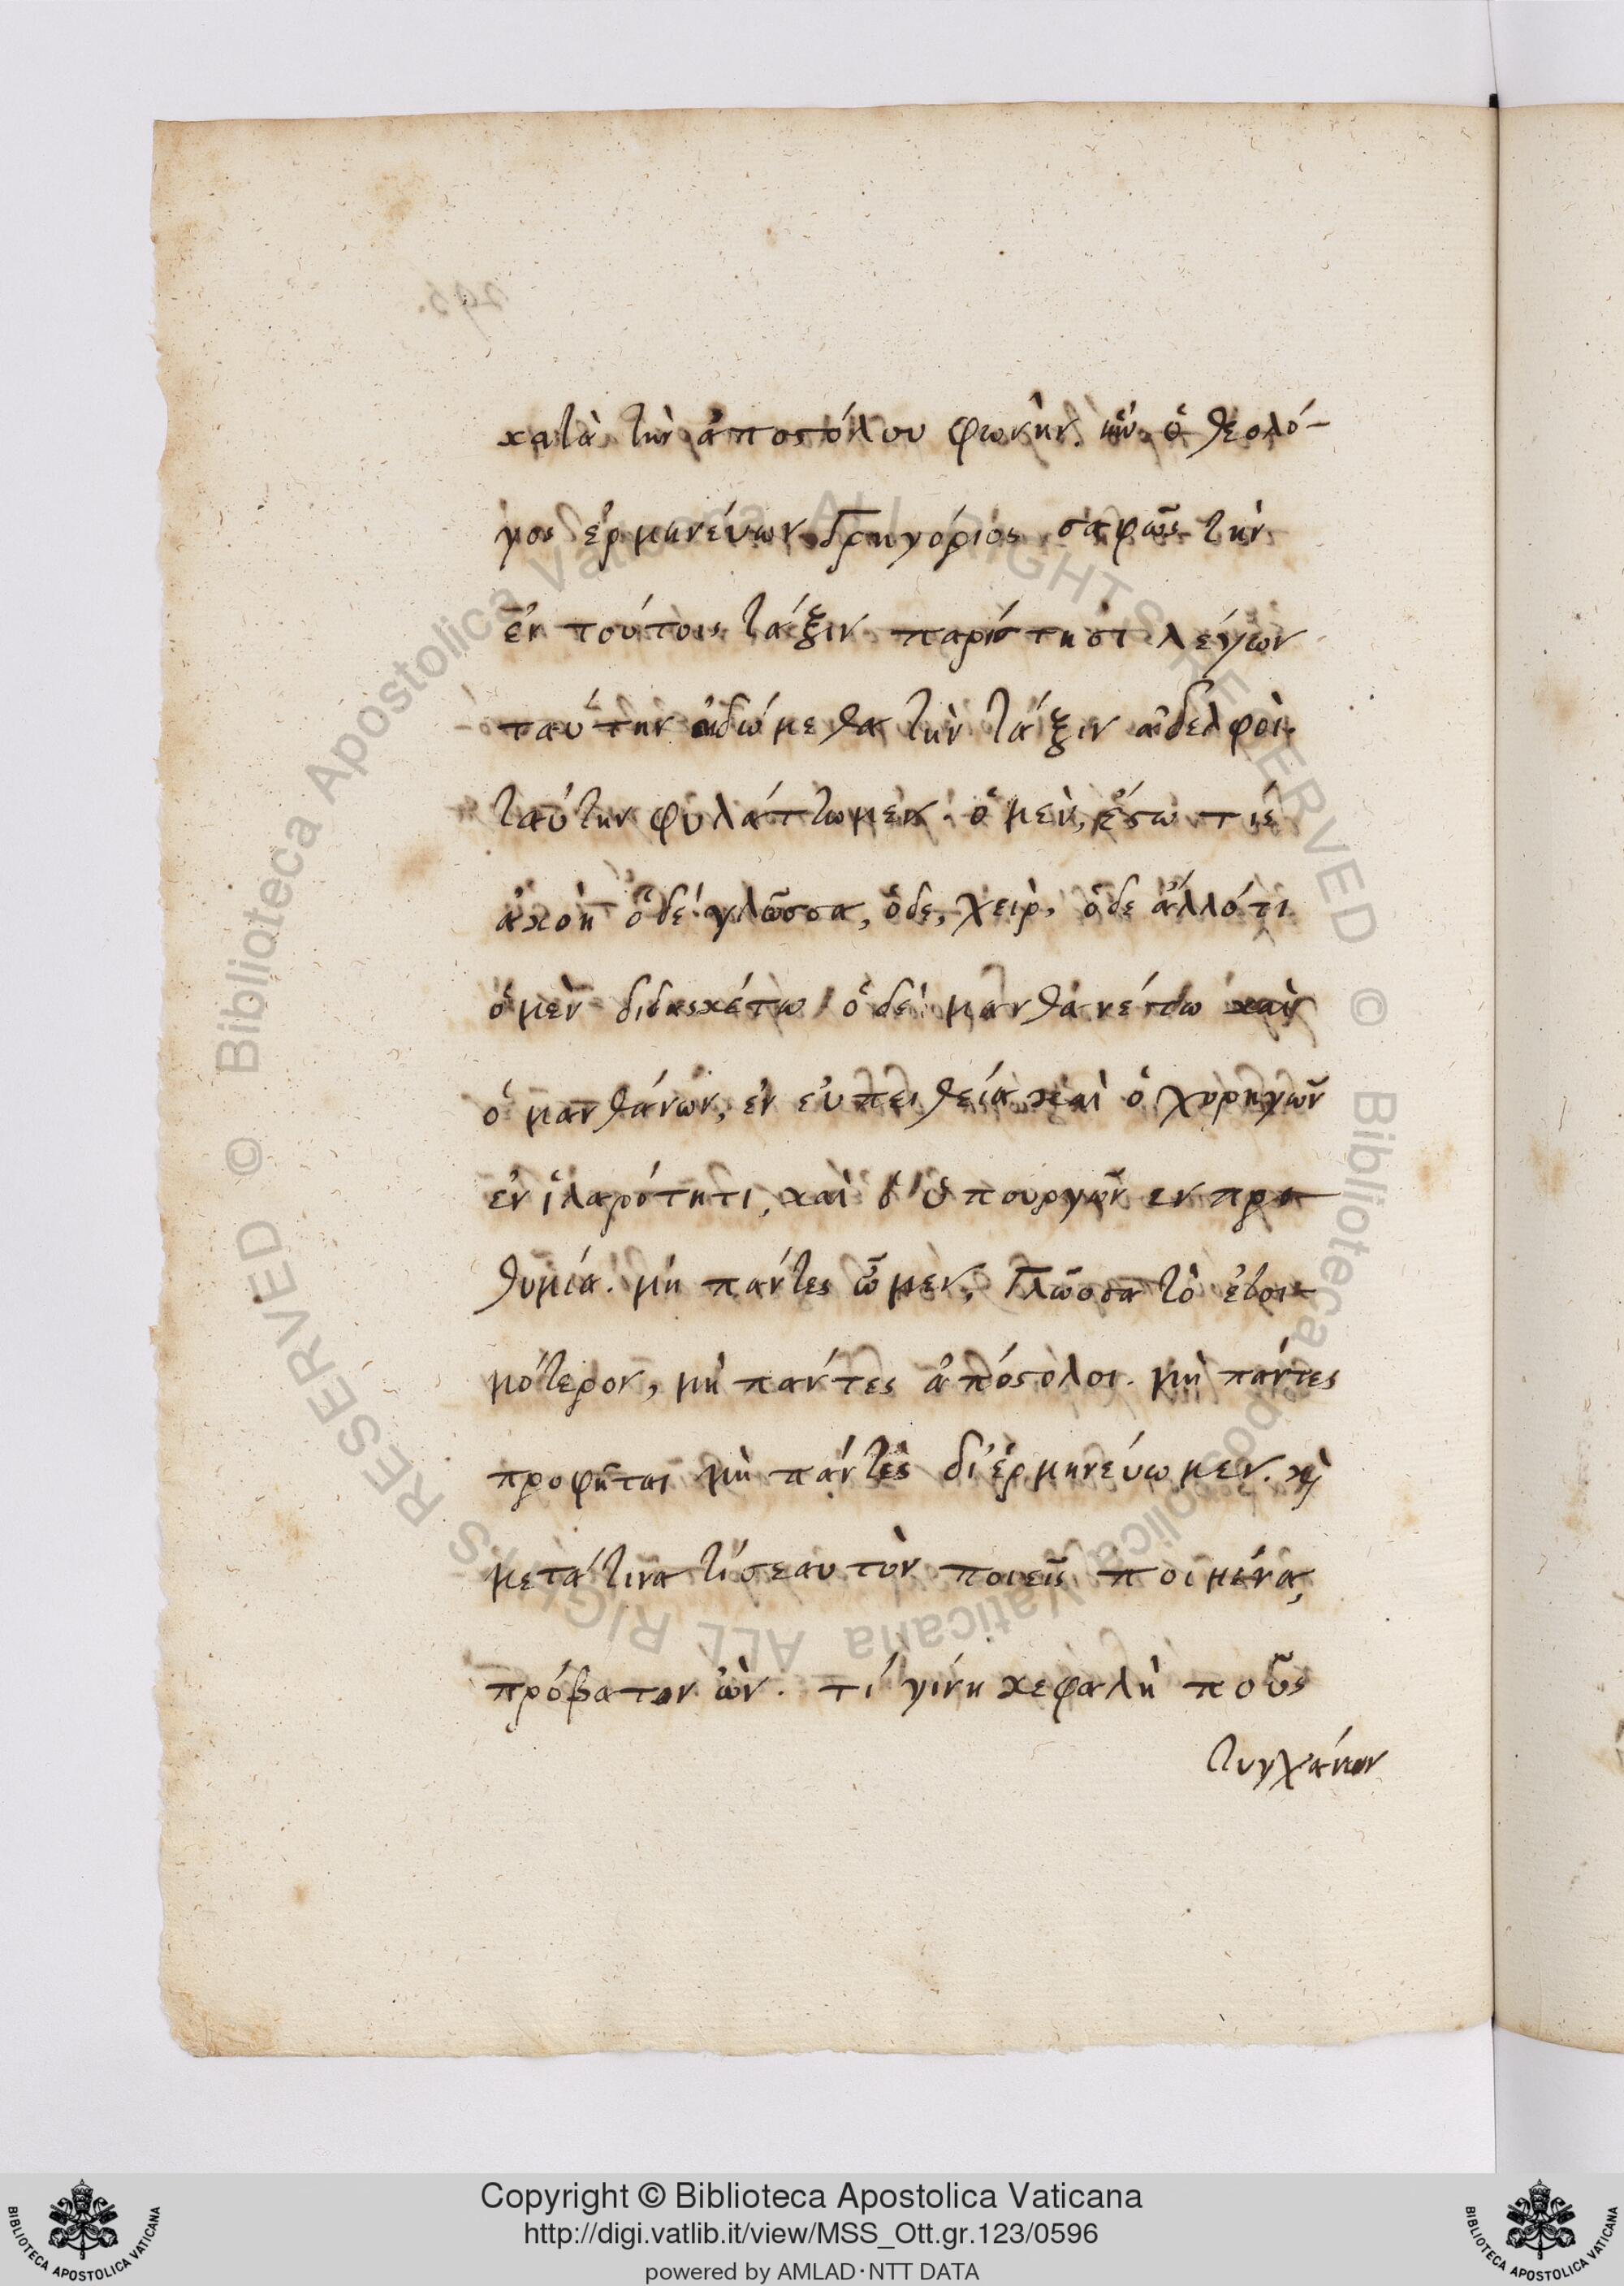 κατὰ τὴν ἀποστόλου φωνὴν. ἣν ὁ θεολό-
γος ἑρμηνεύων Γρηγόριος σαφῶς τὴν
ἐν τούτοις τάξιν παρίστησι λέγων
ταύτην αἰδώμεθα τὴν τάξιν ἀδελφοὶ.
ταύτην φυλάττωμεν. ὁ μεν, ἔστω τις
ἀκοὴ ὁ δέ γλῶσσα, ὁ δε, χεὶρ, ὁ δε ἄλλό τι
ὁ μὲν διδασκέτω ὁ δὲ μανθανέτω καὶ
ὁ μανθάνων, ἐν εὐπειθεία καὶ ὁ χορηγῶν
ἐν ἱλαρότητι, καὶ ὁ ὑπουργῶν εν προ
θυμία. μὴ πάντες ὦμεν, Γλῶσσα τὸ ἑτοι-
μότερον, μὴ πάντες ἀπόστολοι. μὴ πάντες
προφῆται μὴ πάντες διἑρμηνεύωμεν. καὶ
μετά τινα τί σεαυτὸν ποιεῖς ποιμένα,
πρόβατον ὢν. τί γίνη κεφαλὴ ποῦς
τυγχάνων
Copyright © Biblioteca Apostolica Vaticana
http://digi.vatlib.it/view/MSS_Ott.gr.123/0596
powered by AMLAD·NTT DATA
BIBLIOTECA APOSTOLICA VATICANA
BIBLIOTECA APOSTOLICA VATICANA
© Biblioteca Apostolica Vaticana ALL RIGHTS RESERVED
© Biblioteca Apostolica Vaticana ALL RIGHTS RESERVED